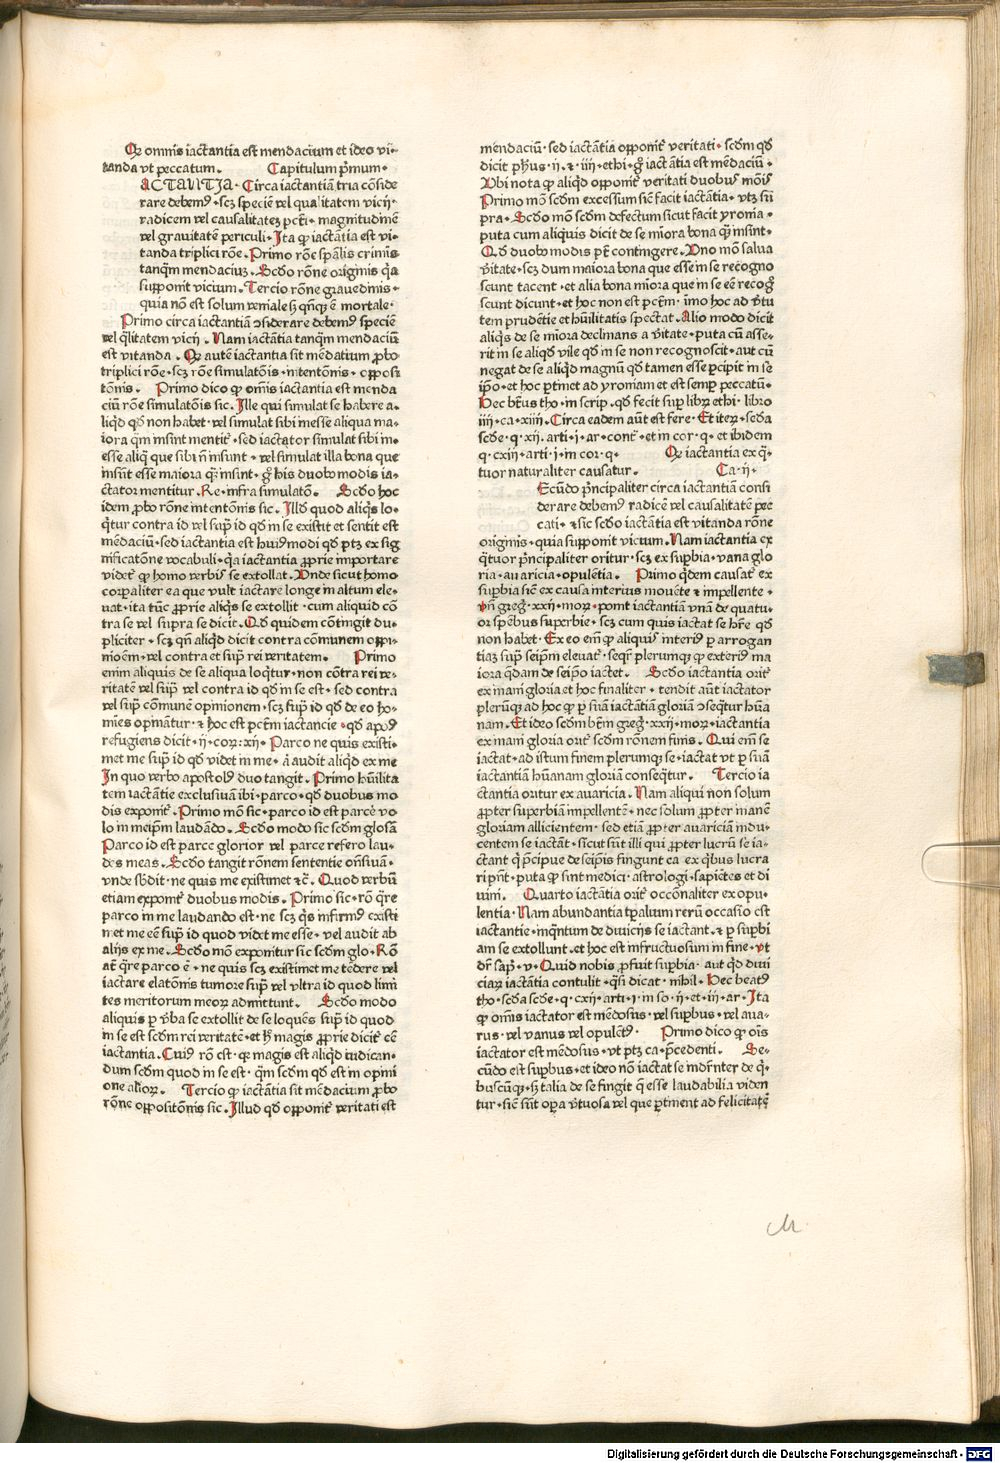 Qꝛ omnis iactantia est mendacium et ideo vi-
tanda vt peccatum. Capitulum pͥmum.
ACTANTIA. Circa iactantiā tria cōside
rare debemꝰ. scꝫ speciē vel qualitatem vicij.
radicem vel causalitateꝫ pctī. magnitudinē
vel grauitatē periculi. Ita ꝙ iactātia est vi-
tanda triplici rōe. Primo rōe spālis criminis
tanqͣm mendaciuꝫ. Scdo rōne originis qͥa
supponit vicium. Tercio rōne grauedinis.
quia nō est solum veniale sꝫ qnqꝫ ē mortale.
Primo circa iactantiā ↄsiderare debemꝰ speciē
vel qͣlitatem vicij. Nam iactātia tanqͣm mendaciū
est vitanda. Qꝛ autē iactantia sit mēdatium ꝓbo
triplici rōe. scꝫ rōe simulatōis. intentōnis. opposi
tōnis. Primo dico ꝙ omis iactantia est menda
ciū rōne simulatōis sic. Ille qui simulat se habere a-
liqͥd qd non habet. vel simulat sibi inesse aliqua ma-
iora qͣm insint mentitͬ. sed iactator simulat sibi in-
esse aliqͣ que sibi nō insunt. vel simulat illa bona que
insūt esse maiora qͣꝫ insint. gͦ his duobꝰ modis ia-
ctator mentitur. Re. infra simulatō. Scdo hoc
idem ꝓbo rōne intentōnis sic. Illd quod aliqͥs lo-
qͥtur contra id vel supͣ id qd in se existit et sentit est
mēdaciū. sed iactantia est huiꝰmodi qd ptꝫ ex sig
nificatōne vocabuli. qͥa iactantia ꝓprie importare
videtͬ ꝙ homo verbis se extollat. Unde sicut homo
corꝑaliter ea que vult iactare longe in altum ele-
uat. ita tūc ꝓprie aliqͥs se extollit. cum aliquid cō
tra se vel supra se dicit. Qd quidem cōtingit du-
pliciter. scꝫ qn̄ aliqͥd dicit contra cōmunem opi-
nioēm. vel contra et supͣ rei veritatem. Primo
enim aliquis de se aliqua loqͥtur. non cōtra rei ve-
ritatē vel supͣ vel contra id qd in se est. sed contra
vel supͣ cōmunē opinionem. scꝫ supͣ id qd de eo ho-
mīes opinātur. ⁊ hoc est pctm̄ iactancie. qd apoꝰ
refugiens dicit. ij. coꝛ: xij. Parco ne quis existi-
met me supͣ id qd videt in me. ā audit aliqͥd ex me
In quo verbo apostolꝰ duo tangit. Primo hūilita
tem iactātie exclusiuā ibi. parco. qd duobus mo
dis exponitͬ. Primo mō sic. parco id est parcē vo-
lo in meipͥm laudādo. Scdo modo sic scdm glosā
Parco id est parce glorior vel parce refero lau-
des meas. Scdo tangit rōnem sententie onsiuā.
vnde sbdit. ne quis me existimet ⁊c̄. Quod verbū
etiam exponitͬ duobus modis. Primo sic. rō qͣre
parco in me laudando est. ne scꝫ qͥs infirmꝰ existi
met me eē supͣ id quod videt me esse. vel audit ab
alijs ex me. Scdo mō exponitur sic scdm glo. Rō
at̄ qͣre parco ē. ne quis scꝫ existimet me tēdere vel
iactare elatōnis tumore supͣ vel vltra id quod limi
tes meritorum meoꝝ admittunt. Scdo modo
aliquis ꝑ vͬba se extollit de se loquēs supͣ id quod
in se est scdm rei veritatē. et hͦ magis ꝓprie dicitͬ cē
iactantia. Cuiꝰ rō est. ꝙ magis est aliqͥd iudican-
dum scdm quod in se est. qͣm scdm qd est in opini
one alioꝝ. Tercio ꝙ iactātia sit mēdacium ꝓbo
rōne oppositōnis sic. Illud qd opponitͬ veritati est
mendaciū. sed iactātia opponitͬ veritati. scdm qd
dicit pħus. ij. ⁊. iiij. ethi. gͦ iactātia est mēdaciū.
Ubi nota ꝙ aliqͥd opponitͬ veritati duobus mōis
Primo mō scdm excessum sicut facit iactātia. vtꝫ su
pra. Scdo mō scdm defectum sicut facit yronia.
puta cum aliquis dicit de se mīora bona qͣꝫ insint.
Qd duobꝰ modis pt̄ contingere. Uno mō salua
vͥitate. scꝫ dum maiora bona que esse in se recogno
scunt tacent. et alia bona mīora que in se eē recoḡ
scunt dicunt. et hoc non est pctm̄. īmo hoc ad vͥtu
tem prudētie et hūilitatis spectat. Alio modo dicit
aliqͥs de se mīora declinans a vͥitate. puta cū asse-
rit in se aliqd vile qd in se non recognoscit. aut cū
negat de se aliqͥd magnū qd tamen esse ꝑcipit in se
ip̄o. et hoc ꝑtinet ad yroniam et est semꝑ peccatū.
Hec btūs tho. in scrip. qd fecit supͣ libꝝ ethi. libro
iiij. ca. xiiij. Circa eadem aūt est fere. Et iteꝝ. scda
scde. q. xij. arti. j. ar. contͬ. et in cor. q. et ibidem
q. cxiij. arti. j. in cor. q. Qꝛ iactantia ex qͣ-
tuor naturaliter causatur. Ca. ij.
Ecūdo pͥncipaliter circa iactantiā consi
derare debemꝰ radicē vel causalitatē pec
cati. ⁊ sic scdo iactātia est vitanda rōne
originis. quia supponit vicium. Nam iactantia ex
qͣtuor pͥncipaliter oritur. scꝫ ex supͣbia. vana glo
ria. auaricia. opulētia. Primo qͥdem causatͬ ex
supͣbia sicut ex causa interius mouēte ⁊ impellente.
vn̄ greg. xxij. moꝝ. ponit iactantiā vnā de quatu-
or spēbus superbie. scꝫ cum quis iactat se hr̄e qd
non habet. Ex eo em̄ ꝙ aliquis interiꝰ ꝑ arrogan
tiaꝫ supͣ seip̄m eleuatͬ. seqͥtͬ plerumqꝫ ꝙ exteriꝰ ma
iora qͣdam de seip̄o iactet. Scdo iactantia oritͬ
ex inani gloria et hoc finaliter. tendit aūt iactator
plerūqꝫ ad hoc ꝙ ꝑ suā iactātiā gloriā ↄseqͣtur hūa
nam. Et ideo scdm btm̄ greg. xxij. moꝝ. iactantia
ex inani gloria oritͬ scdm rōnem finis. Qui em̄ se
iactat. ad istum finem plerumqꝫ se. iactat vt ꝑ suā
iactantiā hūanam gloriā conseqͣtur. Tercio ia
ctantia oritur ex auaricia. Nam aliqui non solum
ꝓpter superbiā impellentē. nec solum ꝓpter inanē
gloriam allicientem. sed etiā ꝓpter auariciā indu-
centem se iactāt. sicut sūt illi qui ꝓpter lucrū se ia-
ctant qͥ pͥcipue de seip̄is fingunt ea ex qͥbus lucra
ri pn̄t. puta ꝙ sint medici. astrologi. sapiētes et di
uini. Quarto iactātia oritͬ occōnaliter ex opu-
lentia. Nam abundantia tp̄alium rerū occasio est
iactantie. inqͣntum de diuicijs se iactant. ⁊ ꝑ supͣbi
am se extollunt. et hoc est infructuosum in fine. vt
dr̄ sapͥ. v. Quid nobis ꝓfuit supͣbia. aut qͥd diui
ciaꝝ iactātia contulit. qͣsi dicat. nihil. Hec beatꝰ
tho. scda scde. q. cxij. arti. j. in so. ij. et. iij. ar. Ita
ꝙ omīs iactator est mēdosus. vel supͣbus. vel aua-
rus. vel vanus vel opulētꝰ. Primo dico ꝙ oīs
iactator est mēdosus. vt ptꝫ ca. pͥcedenti. Se-
cūdo est supͣbus. et ideo nō iactat se indr̄nter de qͥ-
buscūqꝫ. sꝫ talia de se fingit qͥ esse laudabilia viden
tur. sicut sūt oꝑa vͥtuosa vel que ꝑtinent ad felicitatē
M
Digitalisierung gefördert durch die Deutsche Forschungsgemeinschaft - DFG